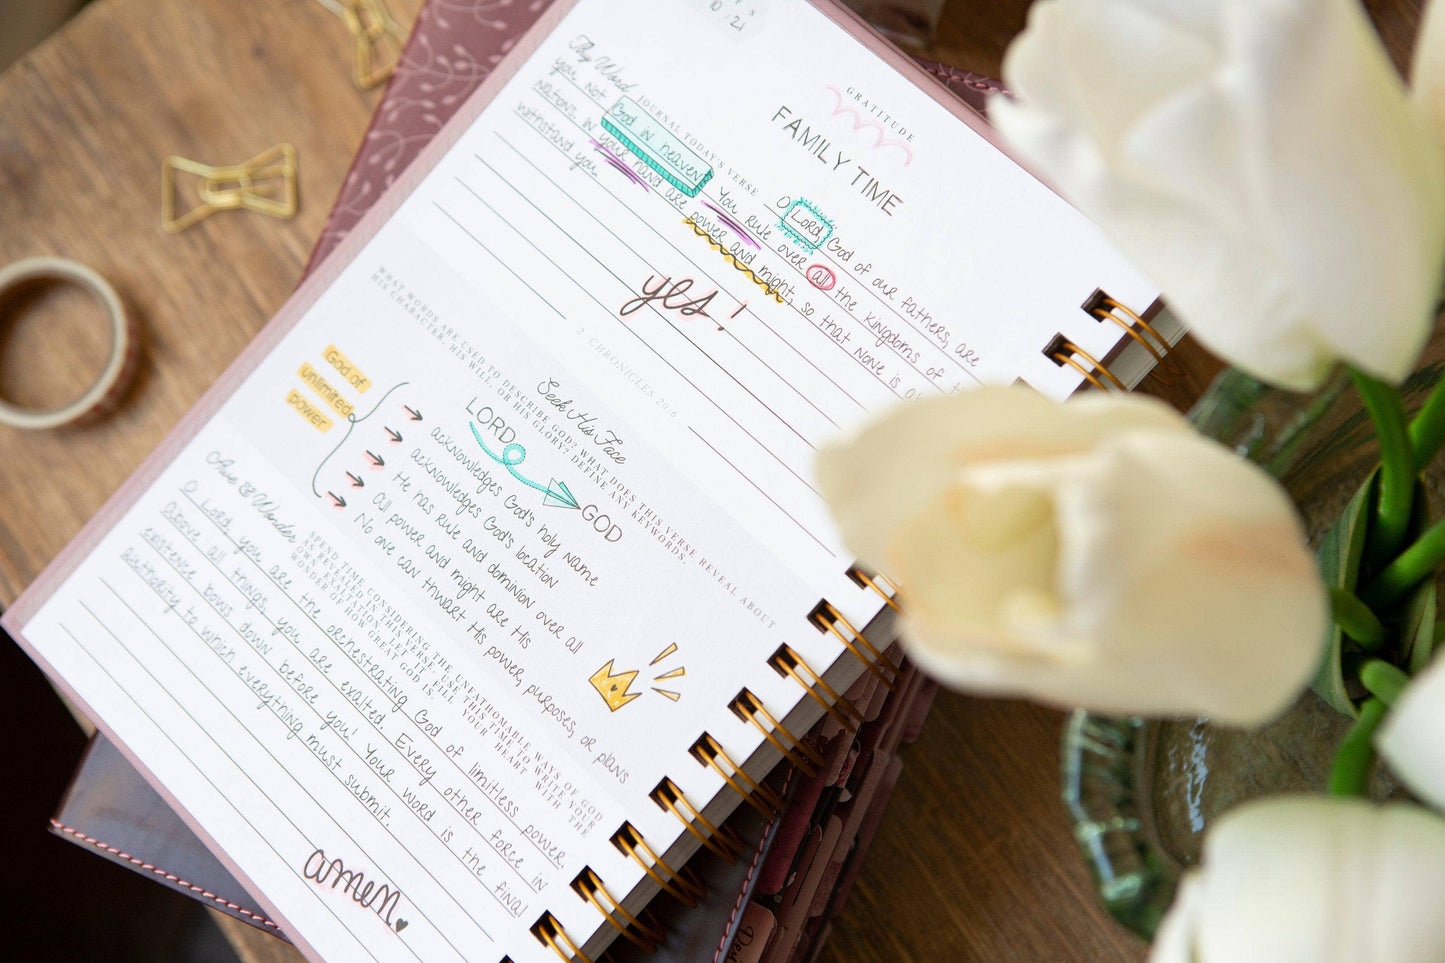 10 / 21
GRATITUDE
FAMILY TIME
Thy Word JOURNAL TODAY'S VERSE
O Lord, God of our fathers, are
you not God in heaven? You rule over all the kingdoms of
nations. In your hand are power and might, so that none is
withstand you.
yes!
2 CHRONICLES 20:6
Seek His Face
WHAT WORDS ARE USED TO DESCRIBE GOD? WHAT DOES THIS VERSE REVEAL ABOUT
HIS CHARACTER, HIS WILL, OR HIS GLORY? DEFINE ANY KEYWORDS.
LORD GOD
God of
unlimited
power
→ acknowledges God's holy name
→ acknowledges God's location
→ He has rule and dominion over all
→ All power and might are His
→ No one can thwart His power, purposes, or plans
Awe & Wonder
SPEND TIME CONSIDERING THE UNFATHOMABLE WAYS OF GOD
AS REVEALED IN THIS VERSE. USE THIS TIME TO WRITE YOUR
OWN EXALTATION OF HOW GREAT GOD IS. FILL YOUR HEART WITH THE
WONDER OF
O Lord you are the orchestrating God of limitless power.
Above all things, you are exalted. Every other force in
existence bows down before you! Your word is the final
authority to which everything must submit.
amen.